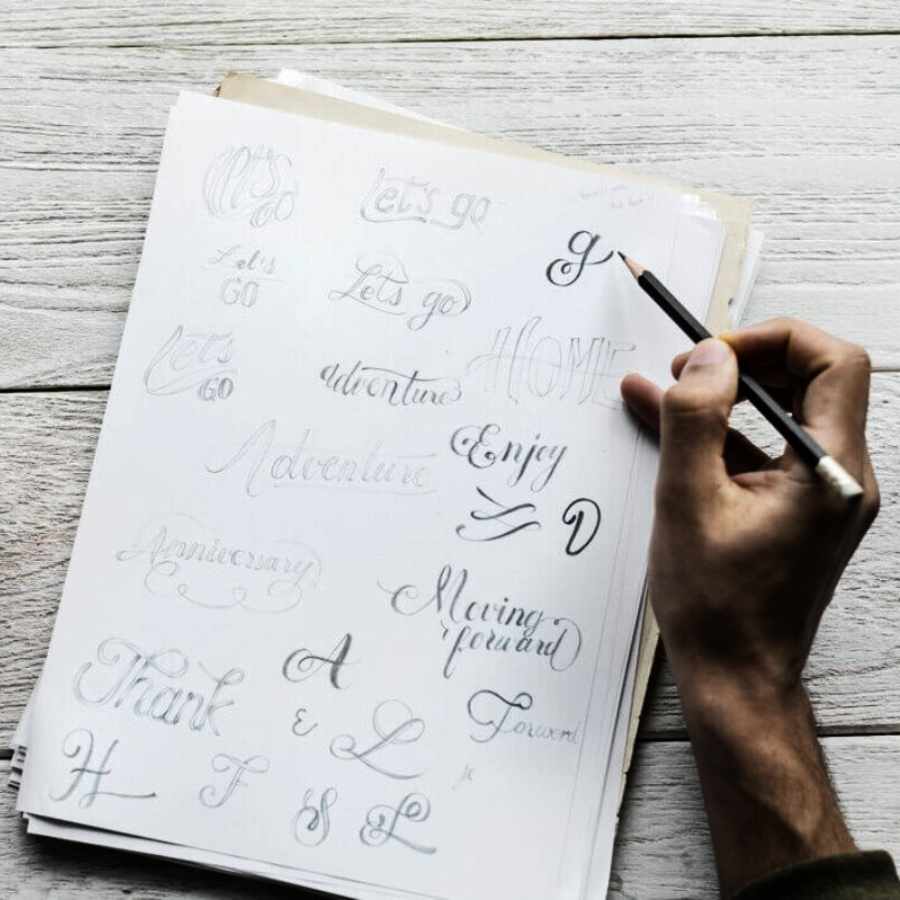 Let's go
g
Let's
GO
Lets go
HOME
Let's
GO
adventure
Enjoy
Adventure
D
Anniversary
Moving
forward
Thank
A
&
L
Forward
H
F
S
L